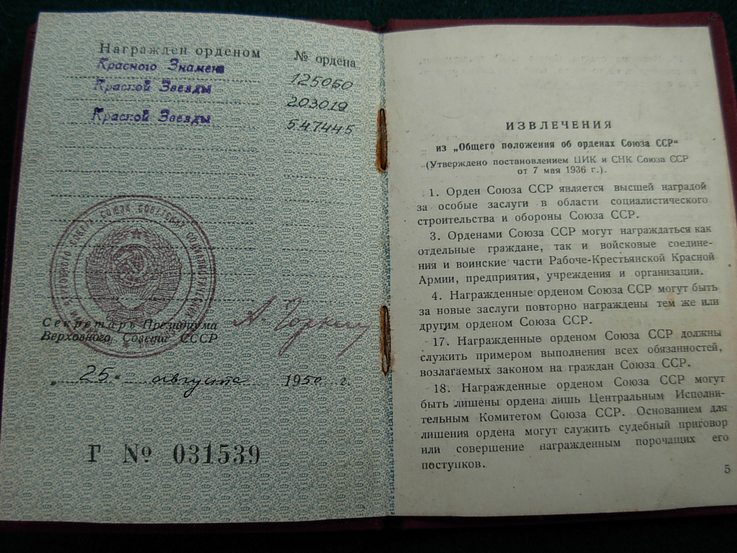 Награжден орденом № ордена
Красного Знамени 125050
Красной Звезды 203019
Красной Звезды 547445
Секретарь Президиума
Верховного Совета СССР
А Горкин
„25" августа 1950 г.
Г № 031539
ИЗВЛЕЧЕНИЯ
из „Общего положения об орденах Союза ССР"
(Утверждено постановлением ЦИК и СНК Союза ССР
от 7 мая 1936 г.).
1. Орден Союза ССР является высшей наградой
за особые заслуги в области социалистического
строительства и обороны Союза ССР.
3. Орденами Союза ССР могут награждаться как
отдельные граждане, так и войсковые соедине-
ния и воинские части Рабоче-Крестьянской Красной
Армии, предприятия, учреждения и организации.
4. Награжденные орденом Союза ССР могут быть
за новые заслуги повторно награждены тем же или
другим орденом Союза ССР.
17. Награжденные орденом Союза ССР должны
служить примером выполнения всех обязанностей,
возлагаемых законом на граждан Союза ССР.
18. Награжденные орденом Союза ССР могут
быть лишены ордена лишь Центральным Исполни-
тельным Комитетом Союза ССР. Основанием для
лишения ордена могут служить судебный приговор
или совершение награжденным порочащих его
поступков.
5